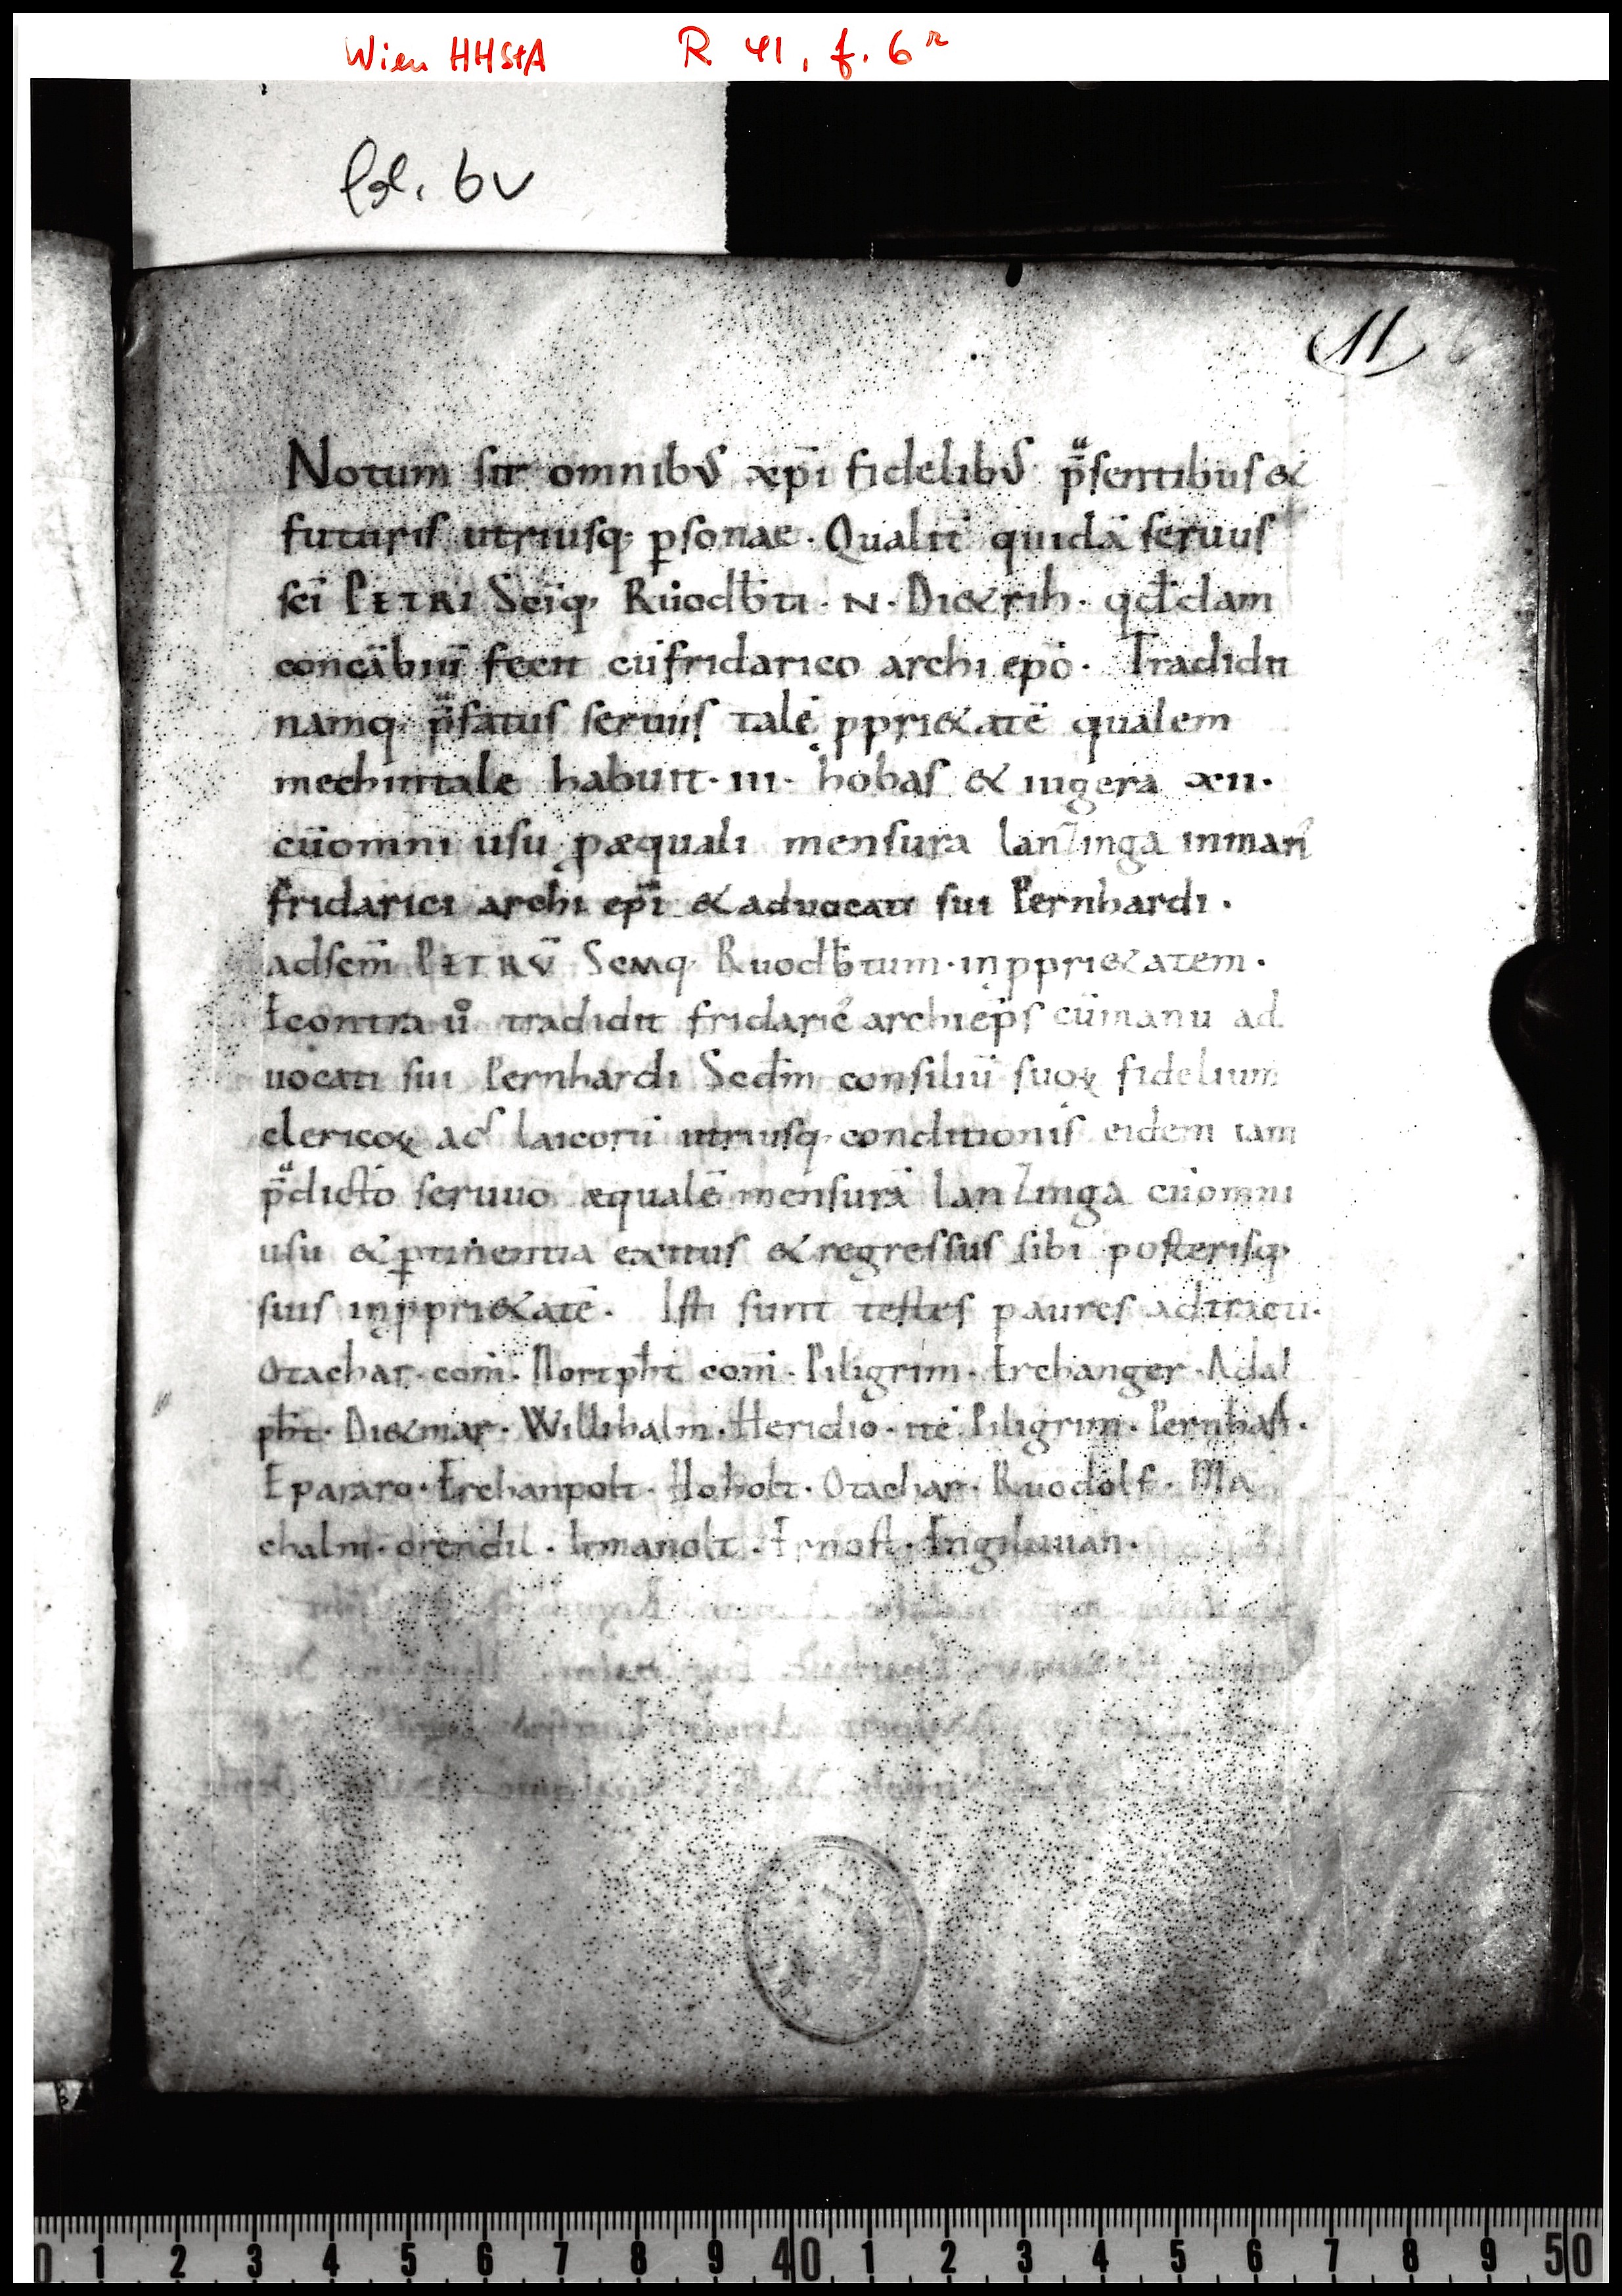 Wien HHStA R 41, f. 6r
fol. 6v
11 6
Notum sit omnibus xp̄i fidelibus p̄sentibus &
futuris utriusq; p̱sonae · Qualit̄ quidā seruus
sc̄i PETRI Sc̄iq; Ruodb̄ti · N · Di&rih · qd̄dam
concābiū fecit cū fridarico archi ep̄o · Tradidit
namq; p̄fatus seruus talē ppri&atē qualem
mechintale habuit · III · hobas & iugera XII ·
cū omni usu p̱ æquali mensura lanzinga inman̄
fridarici archi ep̄i & aduocati sui Pernhardi ·
ad sc̄m PETRV̄ Sc̄mq; Ruodb̄tum · in ppri&atem ·
Econtra ū tradidit fridaric̄ archiep̄s cū manu ad
uocati sui Pernhardi Scd̄m consiliū suoꝝ fidelium
clericoꝝ ac laicorū utriusq; conditionis eidem iam
p̄dicto seruuo æqualē mensurā lanzinga cū omni
usu & p̱tinentia exitus & regressus sibi posterisq;
suis in ppri&atē · Isti sunt testes p aures adtracti ·
Otachar · com̄ · Nortpħt com̄ · Piligrim · Erchanger · Adal
pħt · Di&mar · Willihalm · Heridio · ite Piligrim · Pernhart ·
Epararo · Erchanpolt · Hoholt · Otachar · Ruodolf · Ma
chalm · orendil · Irmanolt · Ernost · Engiluuan ·
0 1 2 3 4 5 6 7 8 9 40 1 2 3 4 5 6 7 8 9 50